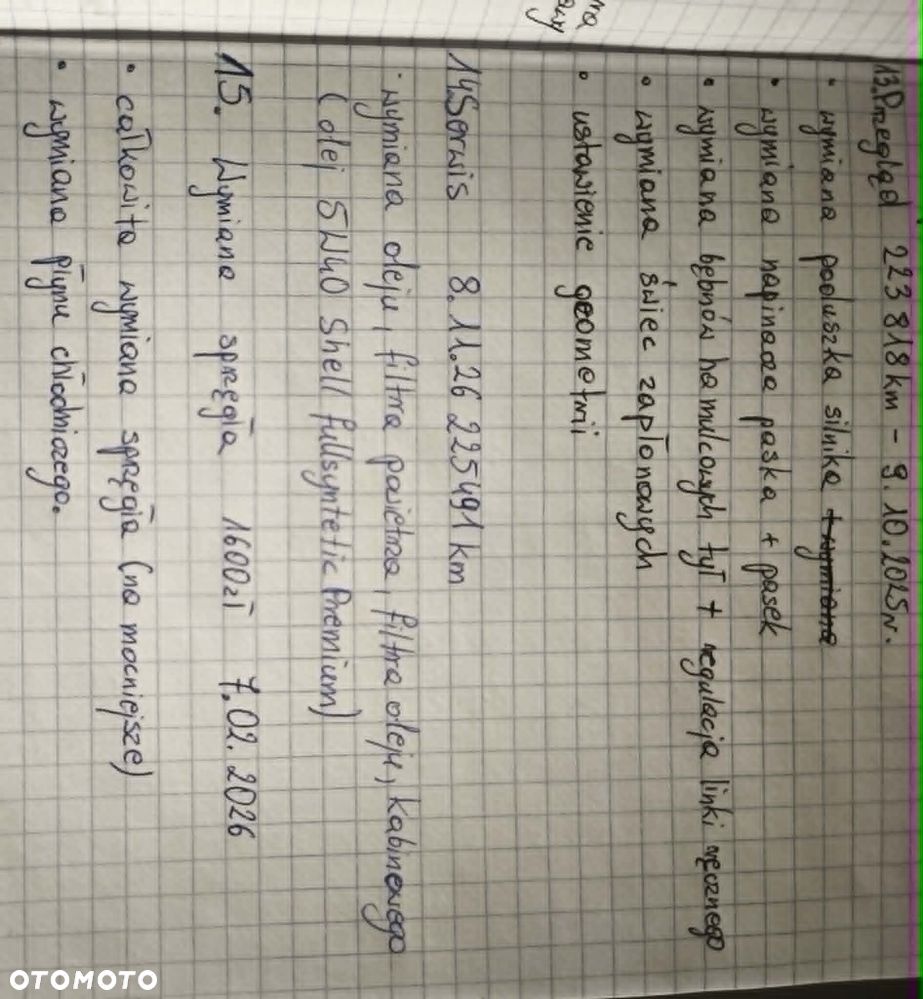 13. Przegląd 223 818 km - 9.10.2025r.
• wymiana poduszka silnika + wymiana
• wymiana napinacza paska + pasek
• wymiana bębnów hamulcowych tył + regulacja linki ręcznego
• wymiana świec zapłonowych
• ustawienie geometrii
14. Serwis 8.11.26 225491 km
• wymiana oleju, filtra powietrza, filtra oleju, kabinowego
(olej 5W40 Shell fullsyntetic Premium)
15. Wymiana sprzęgła 1600zł 7.02.2026
• całkowita wymiana sprzęgła (na mocniejsze)
• wymiana płynu chłodniczego.
OTOMOTO